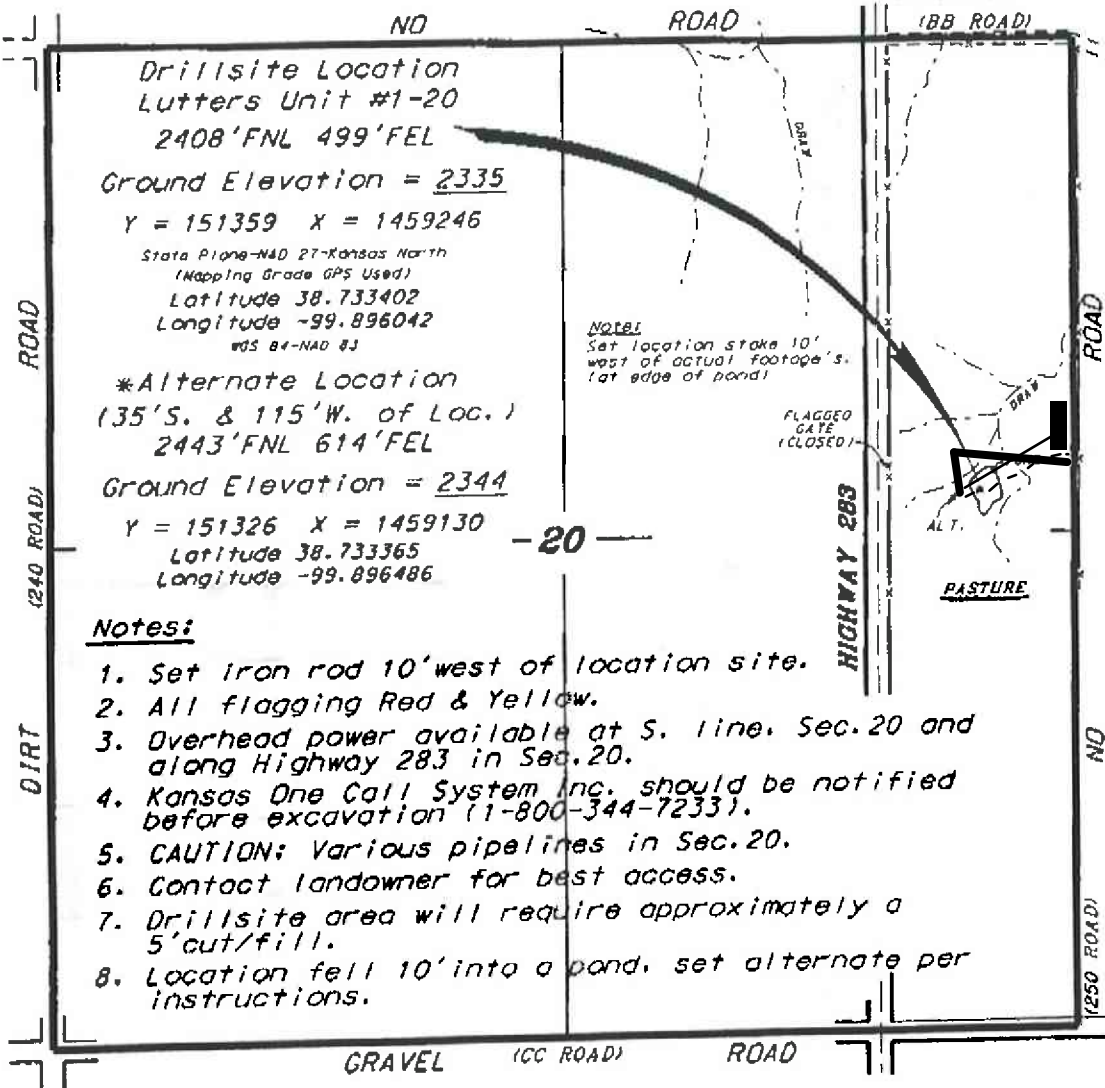 NO ROAD (BB ROAD)
Drillsite Location
Lutters Unit #1-20
2408'FNL 499'FEL
Ground Elevation = 2335
Y = 151359 X = 1459246
State Plane-NAD 27-Kansas North
(Mapping Grade GPS Used)
Latitude 38.733402
Longitude -99.896042
WGS 84-NAD 83
*Alternate Location
(35'S. & 115'W. of Loc.)
2443'FNL 614'FEL
Ground Elevation = 2344
Y = 151326 X = 1459130
Latitude 38.733365
Longitude -99.896486
DRAW
Note:
Set location stake 10'
west of actual footage's.
(at edge of pond)
FLAGGED
GATE
(CLOSED)
DRAW
ALT.
-20-
PASTURE
HIGHWAY 283
Notes:
1. Set iron rod 10'west of location site.
2. All flagging Red & Yellow.
3. Overhead power available at S. line. Sec.20 and
along Highway 283 in Sec.20.
4. Kansas One Call System Inc. should be notified
before excavation (1-800-344-7233).
5. CAUTION: Various pipelines in Sec.20.
6. Contact landowner for best access.
7. Drillsite area will require approximately a
5'cut/fill.
8. Location fell 10'into a pond. set alternate per
instructions.
DIRT (240 ROAD) ROAD
NO ROAD
(250 ROAD)
GRAVEL (CC ROAD) ROAD